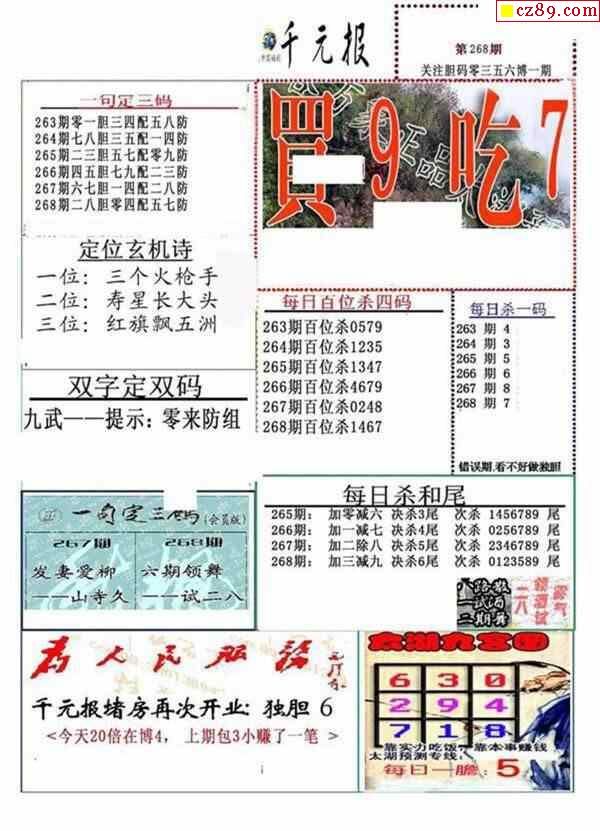 cz89.com
千元报
第268期
关注胆码零三五六博一期
一句定三码
263期零一胆三四配五八防
264期七八胆三五配一四防
265期二三胆五七配零九防
266期四五胆七九配二三防
267期六七胆一四配二八防
268期二八胆零四配五七防
買9吃7
定位玄机诗
一位：三个火枪手
二位：寿星长大头
三位：红旗飘五洲
每日百位杀四码
263期百位杀0579
264期百位杀1235
265期百位杀1347
266期百位杀4679
267期百位杀0248
268期百位杀1467
每日杀一码
263 期 4
264 期 3
265 期 5
266 期 6
267 期 8
268 期 7
错误期,看不好做独胆
双字定双码
九武——提示：零来防组
一句定三码(会员版)
267期
发妻爱柳
——山寺久
268期
六期领舞
——试二八
每日杀和尾
265期： 加零减六 决杀3尾 次杀 1456789 尾
266期： 加一减七 决杀4尾 次杀 0256789 尾
267期： 加二除八 决杀5尾 次杀 2346789 尾
268期： 加三减九 决杀6尾 次杀 0123589 尾
为人民服务
千元报堵房再次开业：独胆 6
<今天20倍在博4， 上期包3小赚了一笔 >
太湖九宫图
6 3 0
2 9 4
7 1 8
靠实力吃饭，靠本事赚钱
太湖预测专线：
每日一胆：5